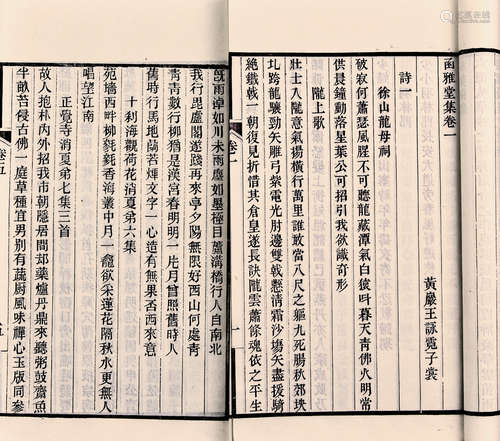 函雅堂集卷一
黃巖王詠霓子裳
詩一
徐山龍母祠
破寂何蕭瑟風腥不可聽龍藏潭氣白猿叫暮天青佛火明常
供晨鐘動落星葉公可招引我欲識奇形
隴上歌
壯士入隴意氣揚橫行萬里誰敢當八尺之軀九死腸秋郊
北跨龍驤勁玉雕弓紫電光肘邊雙戟懸清霜沙場矢盡援騎
絕鐵戟一朝復見折惜其倉皇遂長訣隴雲蕭條魂依之平生
卷一
一
既雨漳如川未雨塵如墨極目蘆溝橋行人自南北
我行毘盧閣遊踐再來亭夕陽無限好西山何處青
青青數行柳猶是漢宮春明明一片月曾照舊時人
舊時行馬地蘭若煒文字一心造有無果否西來意
十刹海觀荷花消夏第六集
苑牆西畔柳毿毿香海叢中月一龕欲采蓮花隔秋水更無人
唱望江南
正覺寺消夏第七集三首
故人抱朴內外招我市朝隱居間却藥爐丹鼎來聽粥鼓齋魚
半畝苔侵古佛一庭草種宜男別有蔬廚風味禪心玉版同參
卷五
五